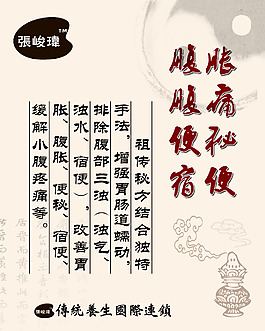 張峻瑋™
腹胀
腹痛
便秘
宿便
祖传秘方结合独特
手法，增强胃肠道蠕动，
排除腹部三浊（浊气、
浊水、宿便），改善胃
胀、腹胀、便秘、宿便、
缓解小腹疼痛等。
張峻瑋 傳統養生國際連鎖